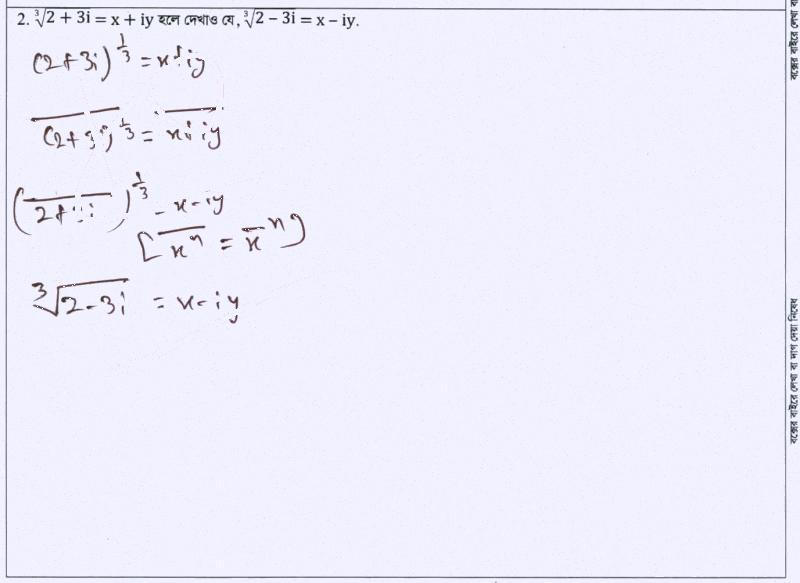 2. ∛2 + 3i = x + iy হলে দেখাও যে, ∛2 – 3i = x – iy.
(2+3i)^{1/3} = x+iy
\overline{(2+3i)^{1/3}} = \overline{x+iy}
(\overline{2+3i})^{1/3} = x-iy
[\overline{x^n} = \overline{x}^n]
∛2-3i = x-iy
বক্সের বাইরে লেখা বা দাগ দেয়া নিষেধ
বক্সের বাইরে লেখা বা